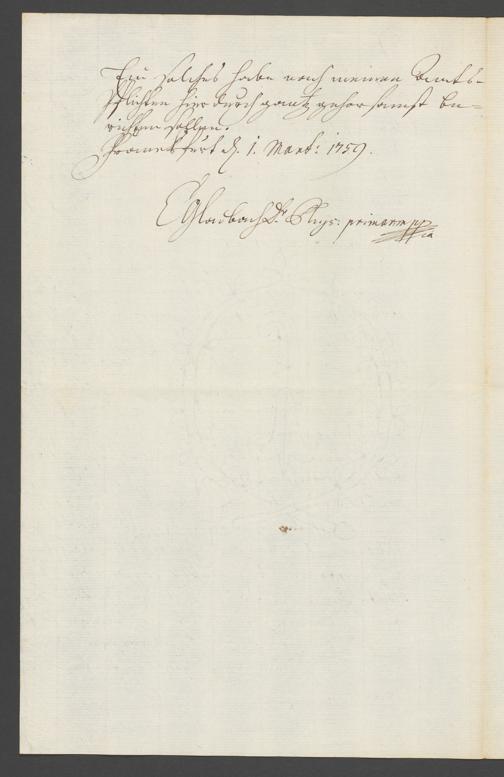 solches habe nach meinen Amts-
Pflichten hierdurch gantz gehorsamst be-
richten sollen.
Franckfurt d. 1. Mart: 1759.
EGladbach Dr. Phys: primarius